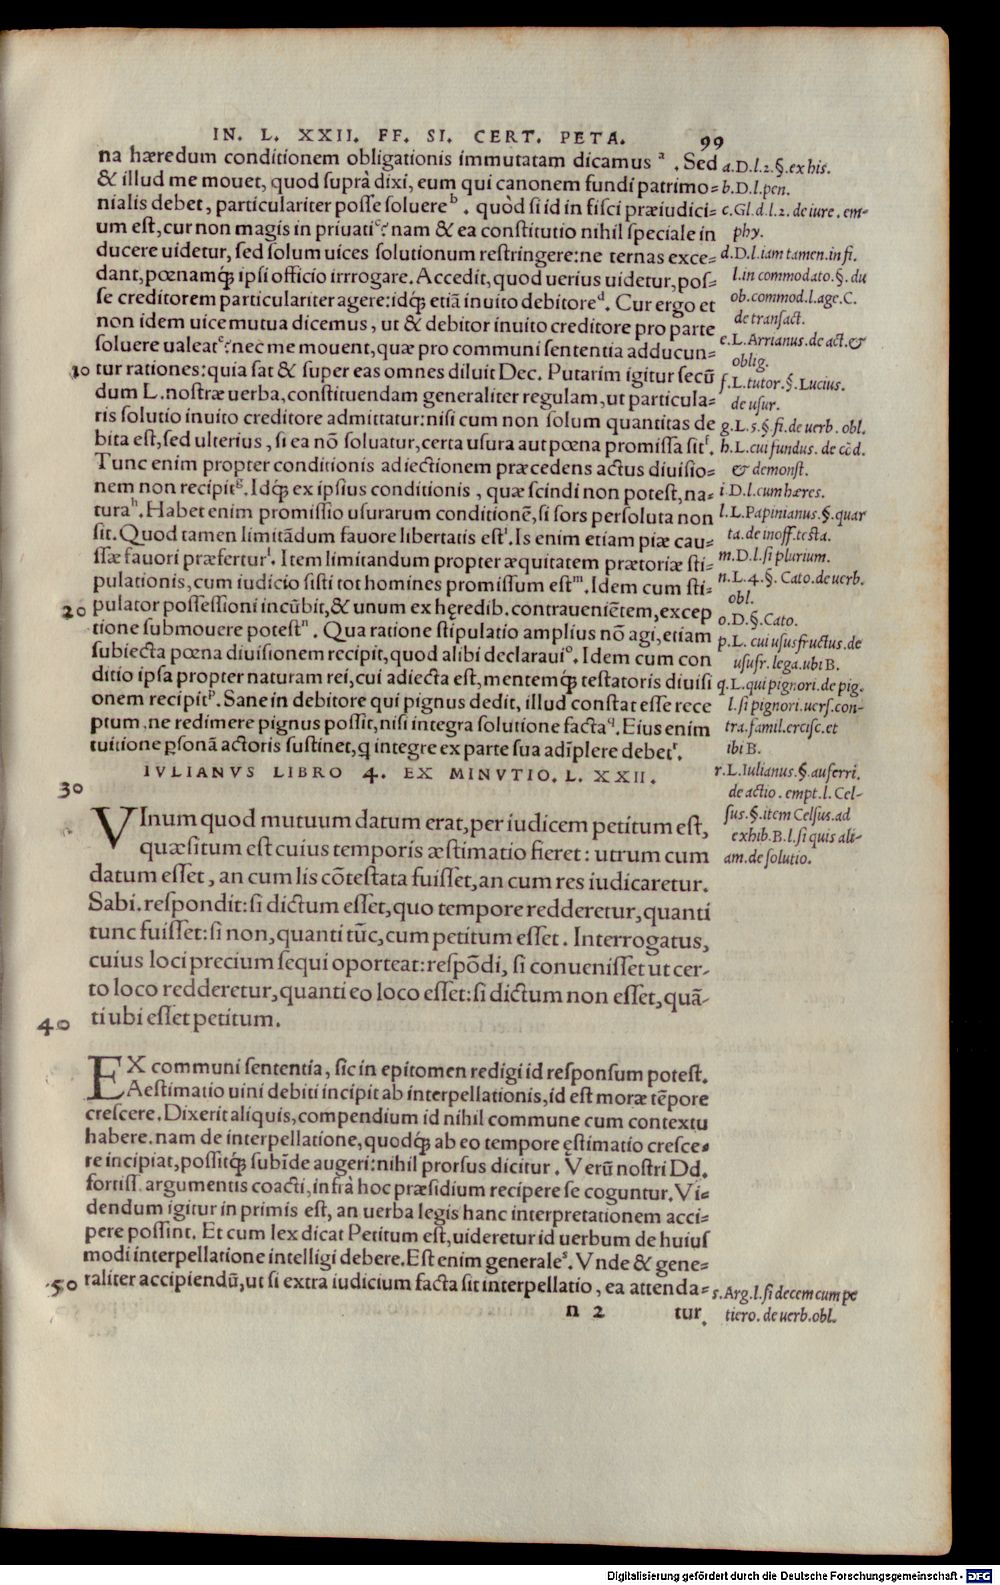 IN. L. XXII. FF. SI. CERT. PETA. 99
na hæredum conditionem obligationis immutatam dicamus ᵃ . Sed
& illud me mouet, quod suprà dixi, eum qui canonem fundi patrimo=
nialis debet, particulariter posse soluere ᵇ . quòd si id in fisci præiudici=
um est, cur non magis in priuati ᶜ? nam & ea constitutio nihil speciale in
ducere uidetur, sed solum uices solutionum restringere: ne ternas exce=
dant, pœnamq́; ipsi officio irrrogare. Accedit, quod uerius uidetur, pos=
se creditorem particulariter agere: idq́; etiā inuito debitore ᵈ . Cur ergo et
non idem uice mutua dicemus, ut & debitor inuito creditore pro parte
soluere ualeat ᵉ? nec me mouent, quæ pro communi sententia adducun=
10 tur rationes: quia sat & super eas omnes diluit Dec. Putarim igitur secū
dum L. nostræ uerba, constituendam generaliter regulam, ut particula=
ris solutio inuito creditore admittatur: nisi cum non solum quantitas de
bita est, sed ulterius, si ea nō soluatur, certa usura aut pœna promissa sit ᶠ.
Tunc enim propter conditionis adiectionem præcedens actus diuisio=
nem non recipit ᵍ. Idq́; ex ipsius conditionis, quæ scindi non potest, na=
tura ʰ. Habet enim promissio usurarum conditionē, si sors persoluta non
sit. Quod tamen limitādum fauore libertatis est ⁱ. Is enim etiam piæ cau=
ssæ fauori præfertur ˡ. Item limitandum propter æquitatem prætoriæ sti=
pulationis, cum iudicio sisti tot homines promissum est ᵐ. Idem cum sti=
20 pulator possessioni incūbit, & unum ex hęredib. contrauenientē, excep
tione submouere potest ⁿ. Qua ratione stipulatio amplius nō agi, etiam
subiecta pœna diuisionem recipit, quod alibi declaraui ᵒ. Idem cum con
ditio ipsa propter naturam rei, cui adiecta est, mentemq́; testatoris diuisi
onem recipit ᵖ. Sane in debitore qui pignus dedit, illud constat esse rece
ptum, ne redimere pignus possit, nisi integra solutione facta ᑫ. Eius enim
tuitione ꝑsonā actoris sustinet, q integre ex parte sua adīplere debet ʳ.
IVLIANVS LIBRO 4. EX MINVTIO. L. XXII.
30
VInum quod mutuum datum erat, per iudicem petitum est,
quæsitum est cuius temporis æstimatio fieret: utrum cum
datum esset, an cum lis cōtestata fuisset, an cum res iudicaretur.
Sabi. respondit: si dictum esset, quo tempore redderetur, quanti
tunc fuisset: si non, quanti tūc, cum petitum esset. Interrogatus,
cuius loci precium sequi oporteat: respōdi, si conuenisset ut cer-
to loco redderetur, quanti eo loco esset: si dictum non esset, quā-
40 ti ubi esset petitum.
EX communi sententia, sic in epitomen redigi id responsum potest.
Aestimatio uini debiti incipit ab interpellationis, id est moræ tēpore
crescere. Dixerit aliquis, compendium id nihil commune cum contextu
habere. nam de interpellatione, quodq́; ab eo tempore ęstimatio cresce=
re incipiat, possitq́; subīde augeri: nihil prorsus dicitur. Verū nostri Dd.
fortiss. argumentis coacti, infrà hoc præsidium recipere se coguntur. Vi=
dendum igitur in primis est, an uerba legis hanc interpretationem acci=
pere possint. Et cum lex dicat Petitum est, uideretur id uerbum de huius
modi interpellatione intelligi debere. Est enim generale ˢ. Vnde & gene=
50 raliter accipiendū, ut si extra iudicium facta sit interpellatio, ea attenda=
n 2 tur.
a. D. l. 2. §. ex his.
b. D. l. pen.
c. Gl. d. l. 2. de iure. em-
phy.
d. D. l. iam tamen. in fi.
l. in commodato. §. du
ob. commod. l. age. C.
de transact.
e. L. Arrianus. de act. &
oblig.
f. L. tutor. §. Lucius.
de usur.
g. L. 5. §. fi. de uerb. obl.
h. L. cui fundus. de cōd.
& demonst.
i. D. l. cum hæres.
l. L. Papinianus. §. quar
ta. de inoff. testa.
m. D. l. si plurium.
n. L. 4. §. Cato. de uerb.
obl.
o. D. §. Cato.
p. L. cui ususfructus. de
usufr. lega. ubi B.
q. L. qui pignori. de pig.
l. si pignori. uers. con-
tra. famil. ercisc. et
ibi B.
r. L. Iulianus. §. auferri.
de actio. empt. l. Cel-
sus. §. item Celsus. ad
exhib. B. l. si quis ali-
am. de solutio.
s. Arg. l. si decem cum pe
tiero. de uerb. obl.
Digitalisierung gefördert durch die Deutsche Forschungsgemeinschaft - DFG